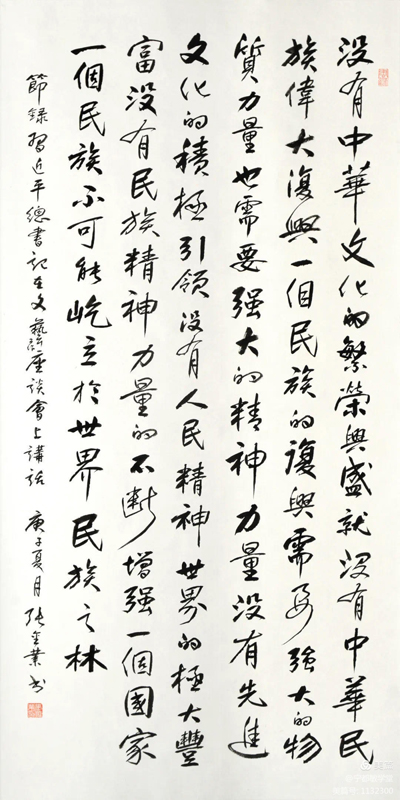 没有中華文化的繁榮興盛就没有中華民
族偉大復興一個民族的復興需要强大的物
質力量也需要强大的精神力量没有先進
文化的積極引領没有人民精神世界的極大豐
富没有民族精神力量的不斷增强一個國家
一個民族不可能屹立於世界民族之林
節録習近平總書記在文藝座談會上講話 庚子夏月 張金業书